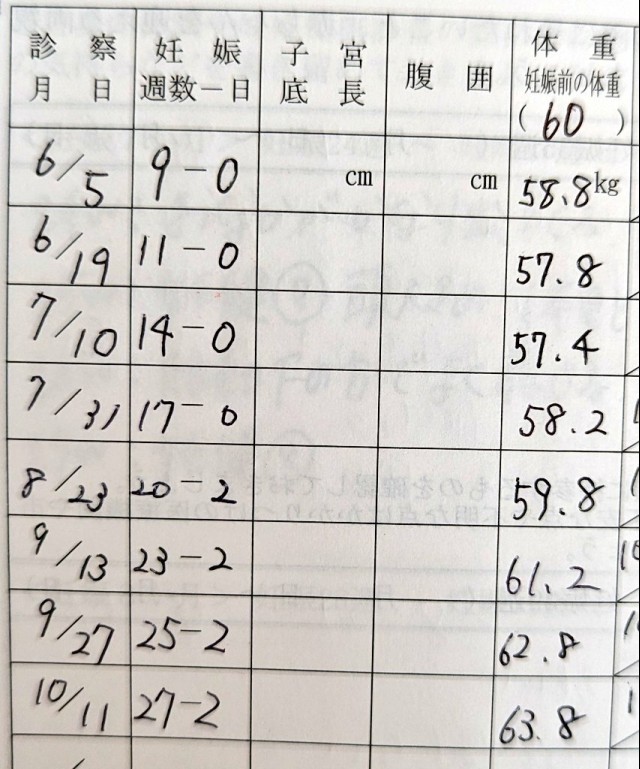 診察 妊娠 子宮 腹囲 体重
月日 週数－日 底長 妊娠前の体重
(60)
6/5 9-0 cm cm 58.8kg
6/19 11-0 57.8
7/10 14-0 57.4
7/31 17-0 58.2
8/23 20-2 59.8
9/13 23-2 61.2
9/27 25-2 62.8
10/11 27-2 63.8